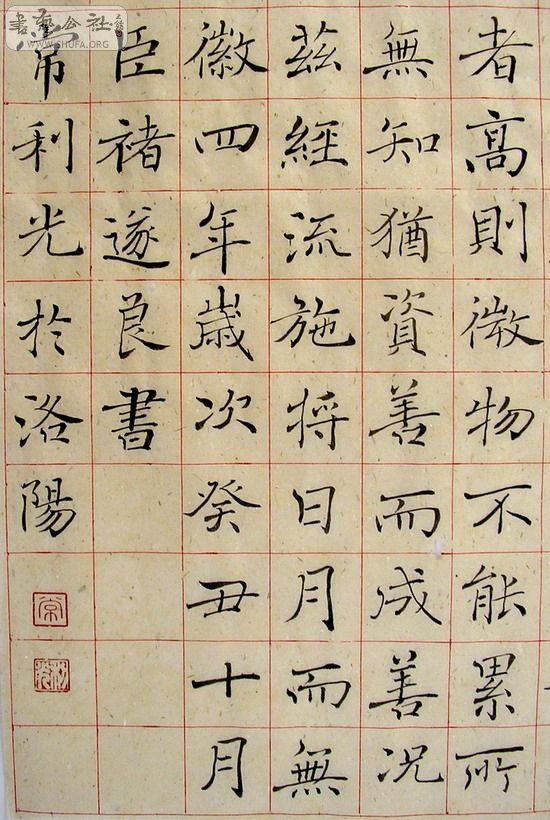 者高則微物不能累所
無知猶資善而成善况
茲經流施将日月而無
徽四年歲次癸丑十月
臣褚遂良書
常利光於洛陽
常
書藝公社
WWW.SHUFA.ORG